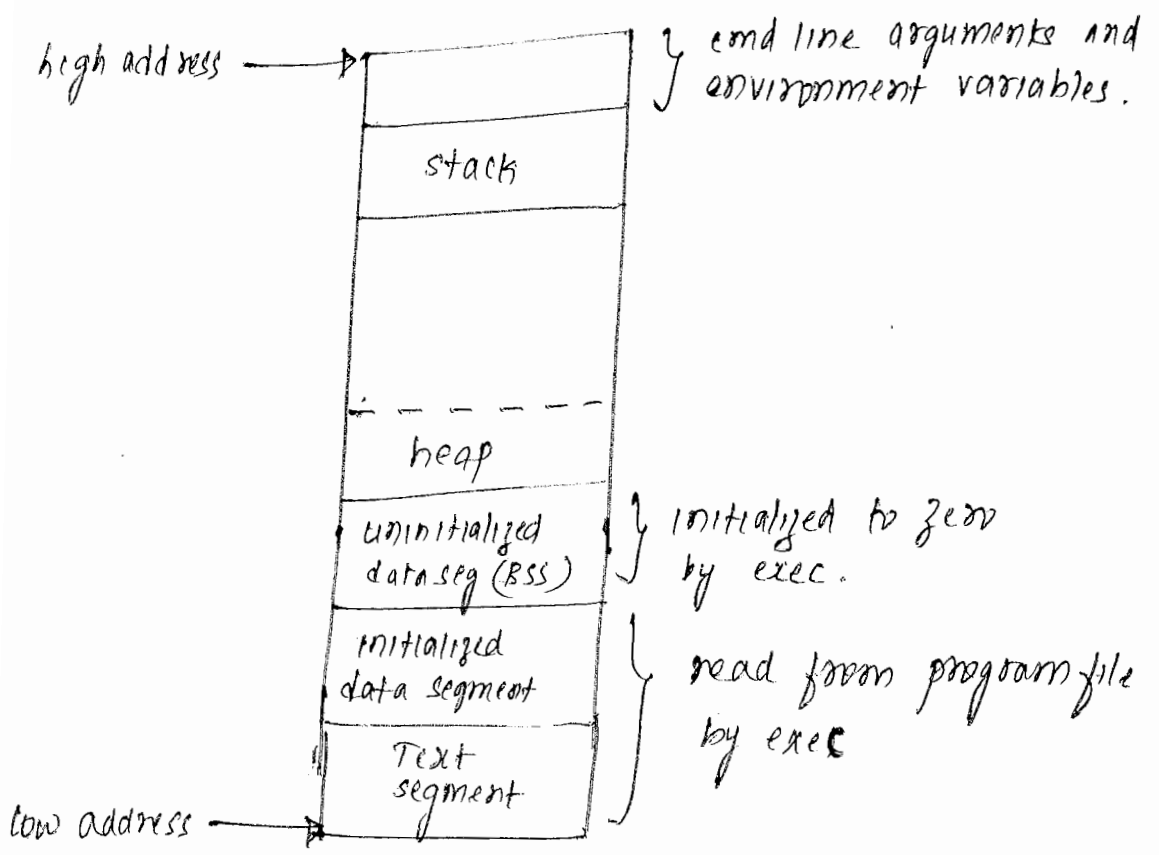 high address
cmd line arguments and
environment variables.
stack
heap
uninitialized
data seg (BSS)
initialized to zero
by exec.
initialized
data segment
read from program file
by exec
Text
segment
low address